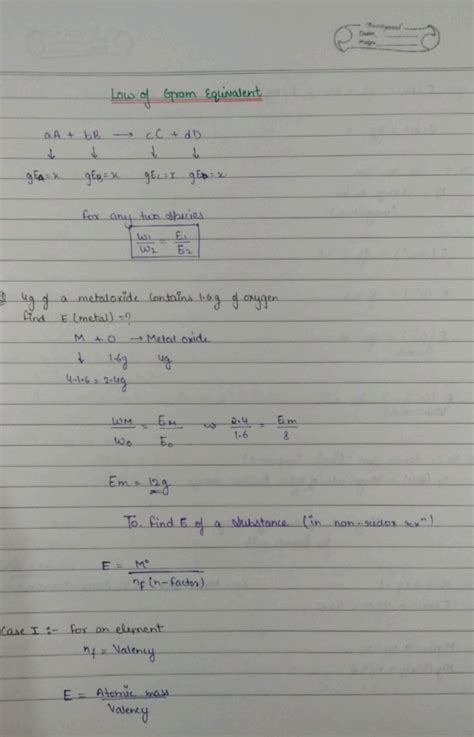 Date
Page
Low of Gram Equivalent
aA + bB → cC + dD
↓ ↓ ↓ ↓
gEA=x gEB=x gEC=x gED=x
for any two species
W1/W2 = E1/E2
4g of a metaloxide contains 1.6g of oxygen
find E (metal) = ?
M + O → Metal oxide
↓ 1.6g 4g
4-1.6 = 2.4g
WM/WO = EM/EO ⇒ 2.4/1.6 = Em/8
Em = 12g
To find E of a substance (in non-redox rxn)
E = M°/nf (n-factor)
Case I :- for an element
nf = Valency
E = Atomic mass/Valency